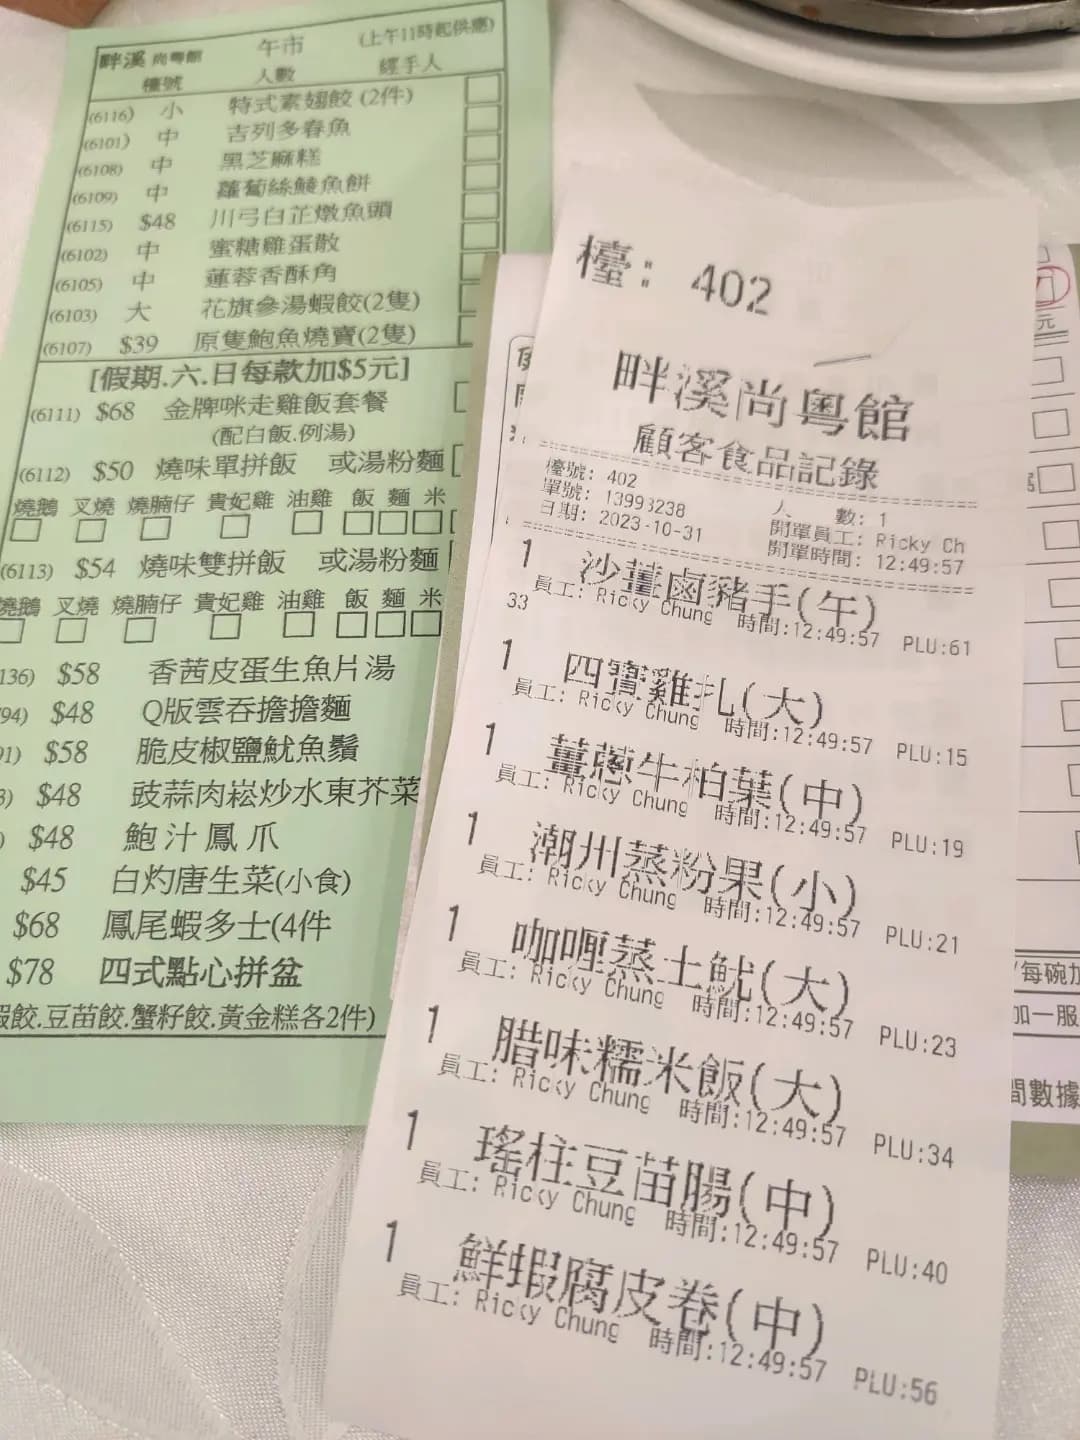 畔溪 尚粵館 午市 (上午11時起供應)
檯號 人數 經手人
(6116) 小 特式素翅餃 (2件)
(6101) 中 吉列多春魚
(6108) 中 黑芝麻糕
(6109) 中 蘿蔔絲鯪魚餅
(6115) $48 川弓白芷燉魚頭
(6102) 中 蜜糖雞蛋散
(6105) 中 蓮蓉香酥角
(6103) 大 花旗參湯蝦餃(2隻)
(6107) $39 原隻鮑魚燒賣(2隻)
[假期.六.日每款加$5元]
(6111) $68 金牌咪走雞飯套餐
(配白飯.例湯)
(6112) $50 燒味單拼飯 或湯粉麵
燒鵝 叉燒 燒腩仔 貴妃雞 油雞 飯 麵 米
(6113) $54 燒味雙拼飯 或湯粉麵
燒鵝 叉燒 燒腩仔 貴妃雞 油雞 飯 麵 米
136) $58 香茜皮蛋生魚片湯
94) $48 Q版雲吞擔擔麵
91) $58 脆皮椒鹽魷魚鬚
3) $48 豉蒜肉崧炒水東芥菜
) $48 鮑汁鳳爪
$45 白灼唐生菜(小食)
$68 鳳尾蝦多士(4件
$78 四式點心拼盆
蝦餃.豆苗餃.蟹籽餃.黃金糕各2件)
檯: 402
畔溪尚粵館
顧客食品記錄
檯號: 402 人 數: 1
單號: 13993238 開單員工: Ricky Ch
日期: 2023-10-31 開單時間: 12:49:57
1 沙薑鹵豬手(午)
員工: Ricky Chung 時間:12:49:57 PLU:61
33
1 四寶雞扎(大)
員工: Ricky Chung 時間:12:49:57 PLU:15
1 薑蔥牛柏葉(中)
員工: Ricky Chung 時間:12:49:57 PLU:19
1 潮州蒸粉果(小)
員工: Ricky Chung 時間:12:49:57 PLU:21
1 咖喱蒸土魷(大)
員工: Ricky Chung 時間:12:49:57 PLU:23
1 腊味糯米飯(大)
員工: Ricky Chung 時間:12:49:57 PLU:34
1 瑤柱豆苗腸(中)
員工: Ricky Chung 時間:12:49:57 PLU:40
1 鮮蝦腐皮卷(中)
員工: Ricky Chung 時間:12:49:57 PLU:56
元
/每碗加
加一服
間數據